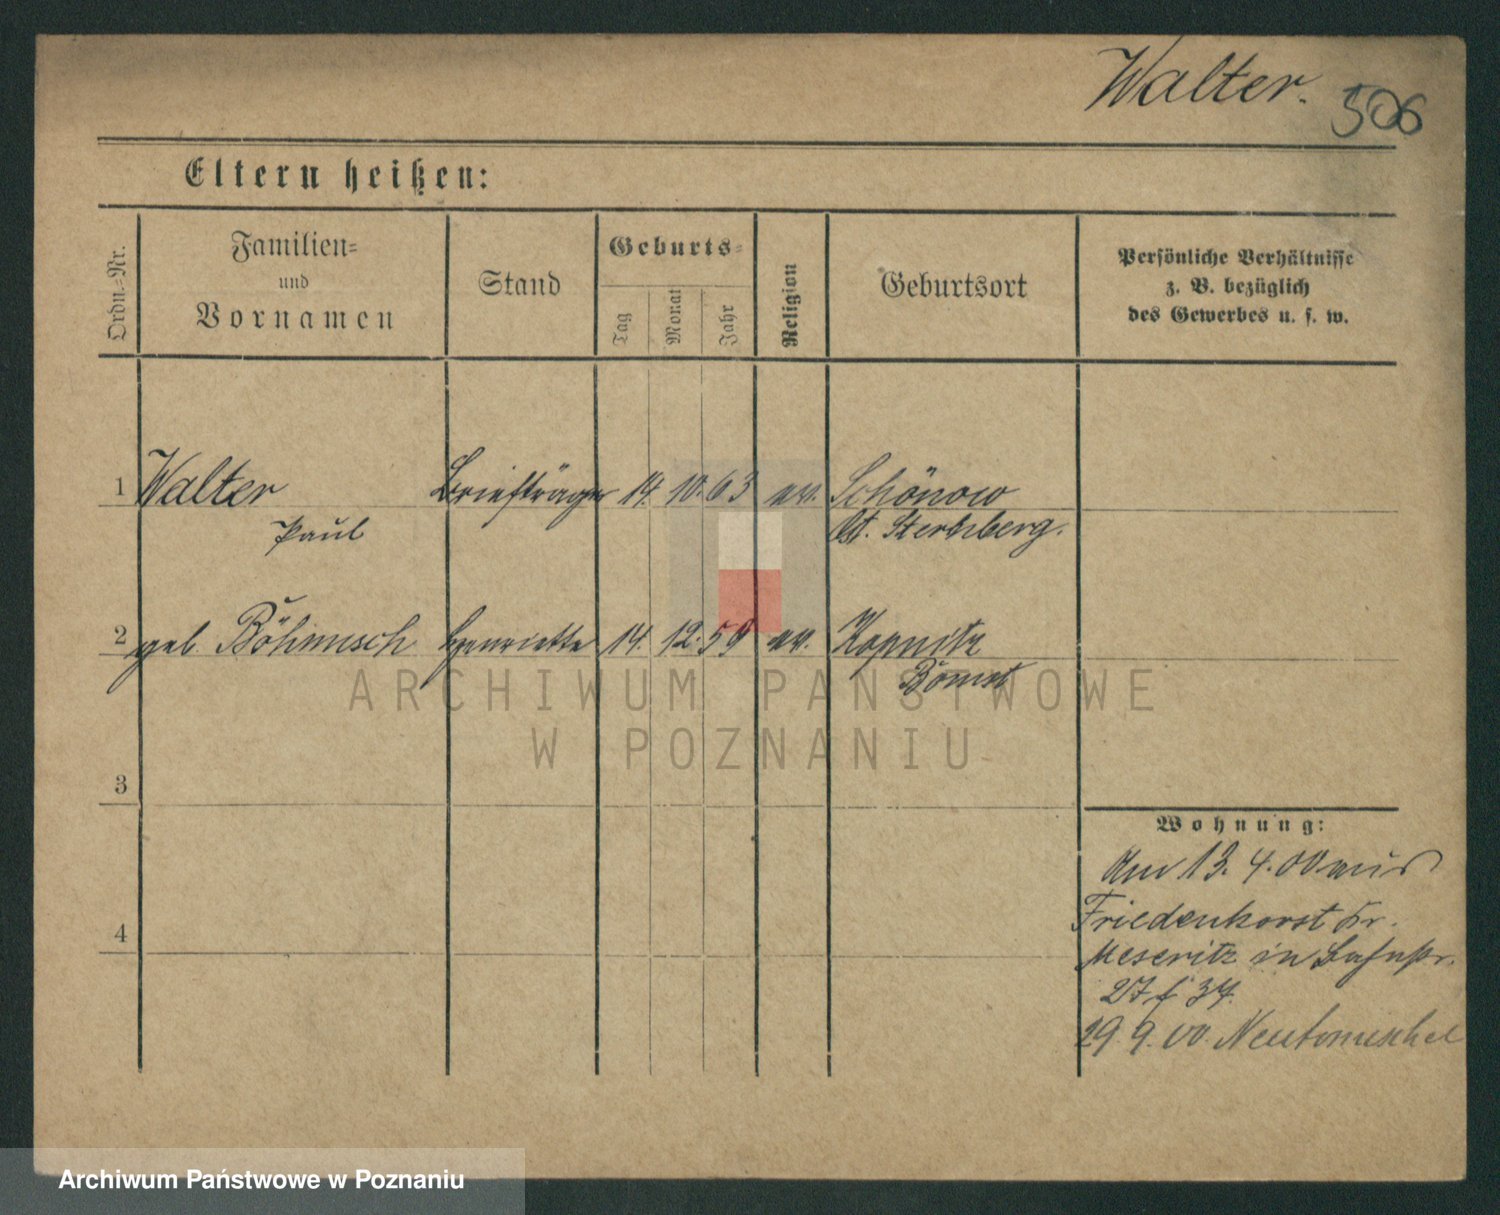 Walter. 506
Eltern heißen:
Ordn.-Nr.
Familien-
und
Vornamen
Stand
Geburts-
Tag
Monat
Jahr
Religion
Geburtsort
Persönliche Verhältnisse
z. B. bezüglich
des Gewerbes u. s. w.
1 Walter Briefträger 14. 10. 63 ev. Schönow
Paul Ost. Sternberg.
2 geb. Böhmisch Henriette 14. 12. 59 ev. Kopnitz
Bomst
ARCHIWUM PAŃSTWOWE
W POZNANIU
3
Wohnung:
Am 13. 4. 00 aus
Friedenhorst Kr.
4
Meseritz in
27 f 34.
29. 9. 00. Neutomischel
Archiwum Państwowe w Poznaniu